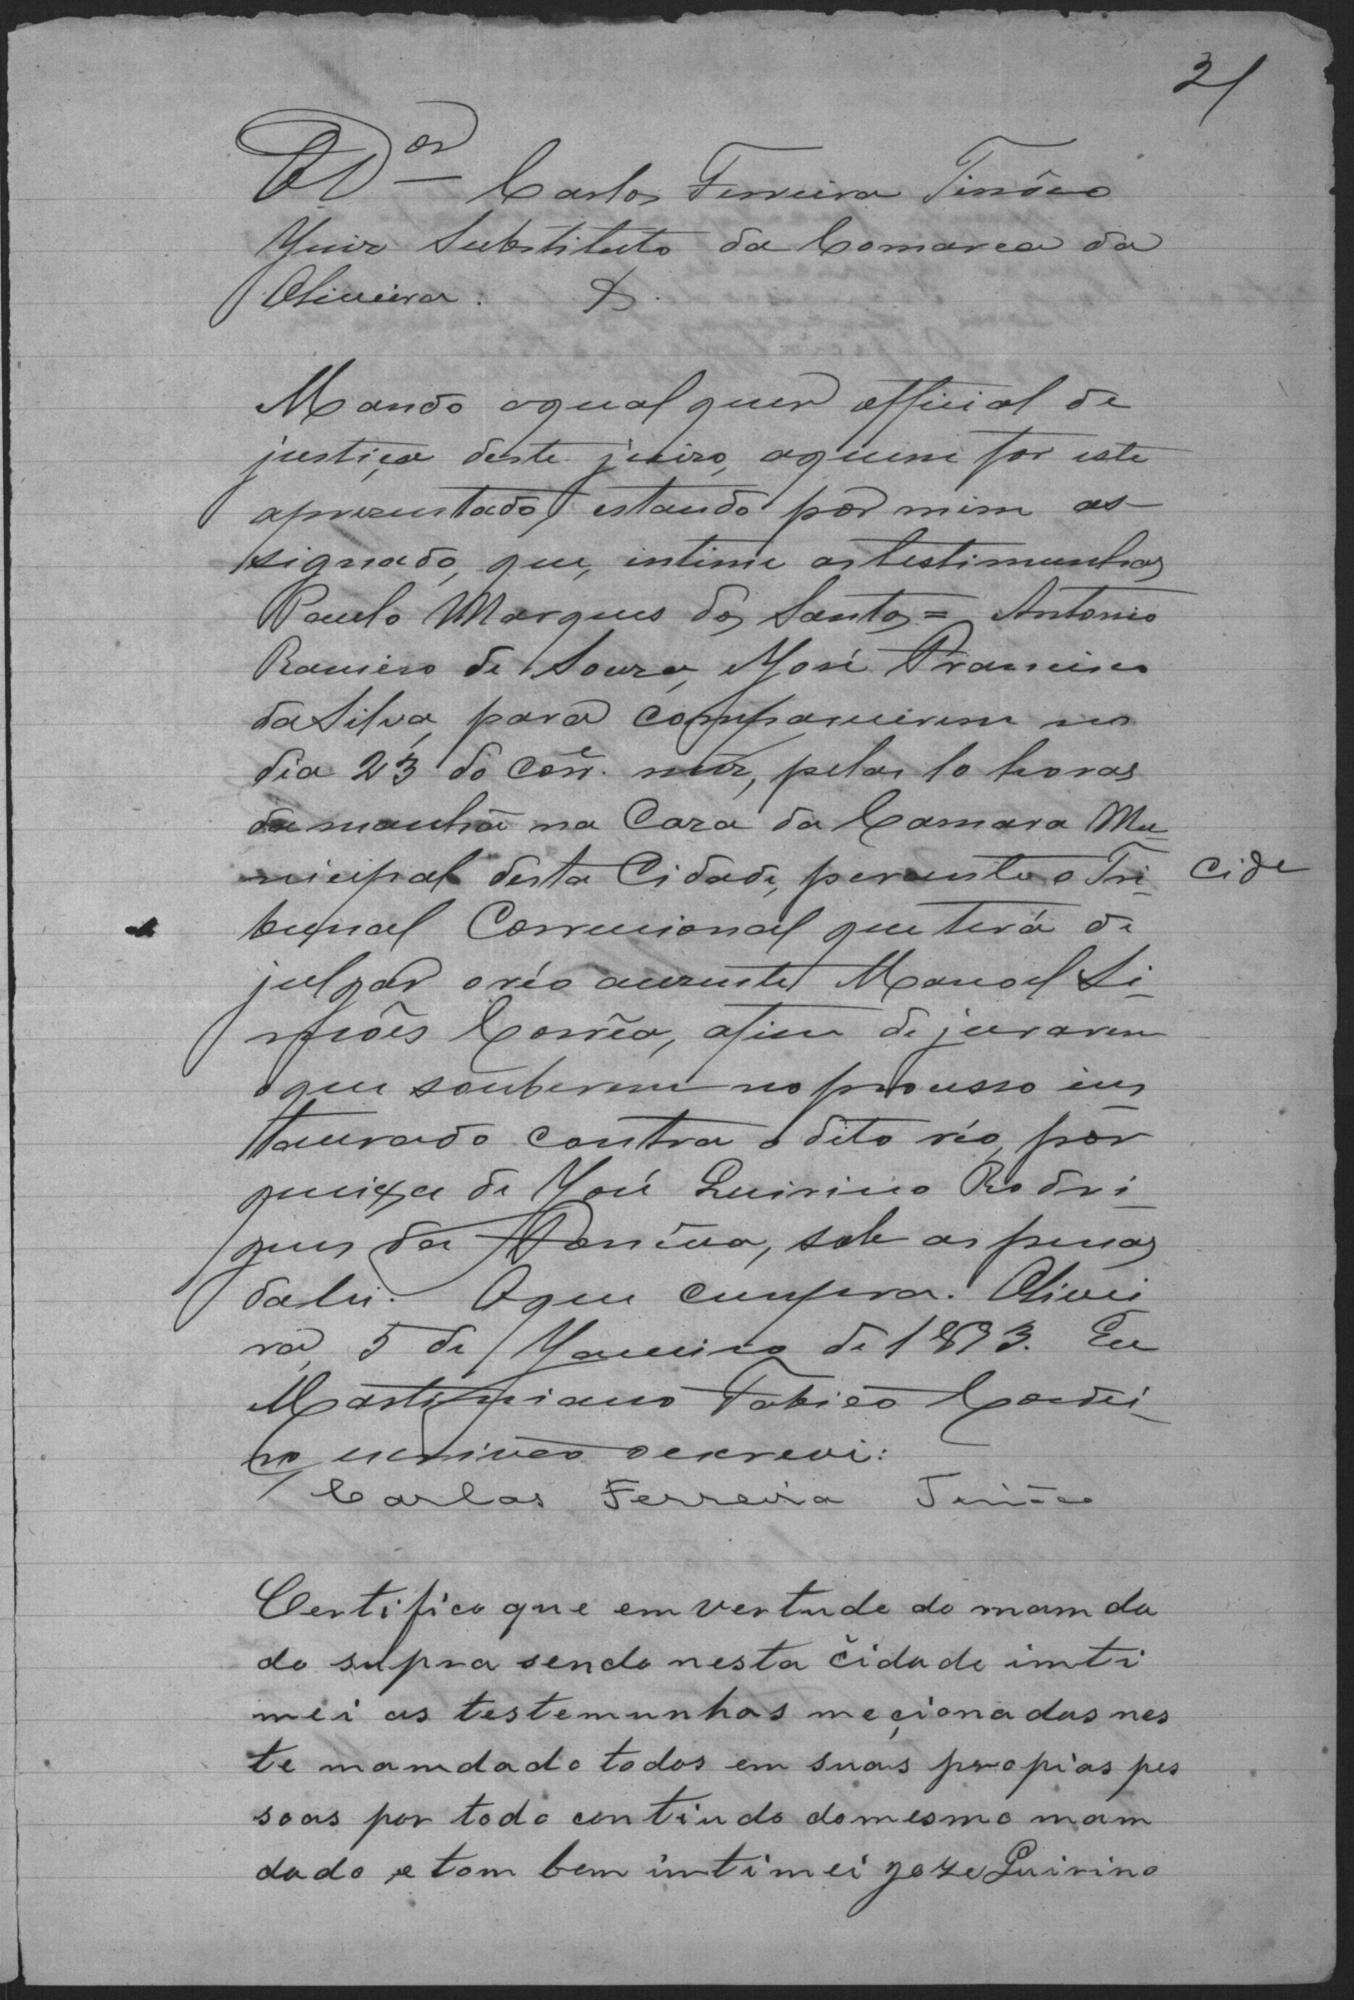 21
O Dor Carlos Ferreira Tinôco
Juiz Substituto da Comarca da
Oliveira. &.
Mando aqualquer official de
justiça deste juizo, aquem for este
aprezentado, estando por mim as-
signado, que, intime as testimunhas
Paulo Marques dos Santos = Antonio
Ramiro de Souza, José Francisco
da Silva, para comparecerem no
dia 23 do corre. mez, pelas 10 horas
da manhã na Caza da Camara Mu-
nicipal desta Cidade, perante o Tri-
cide
bunal Correccional que terá de
julgar o réo auzente Manoel Si-
mões Corrêa, afim de jurarem
o que souberem no processo ins
taurado contra o dito réo, por
queixa de José Quirino Rodri-
gues da , sob as penas
da lei. O que cumpra. Olivei
ra, 5 de Janeiro de 1893. Eu
Martiniano Fabião Cordei-
ro escrivão o escrevi:
Carlos Ferreira Tinôco
Certifico que em vertude do mamda
do supra sendo nesta cidade imti
mei as testemunhas meçionadas nes
te mamdado todos em suas propias pes
soas por todo contiudo do mesmo mam
dado e tom bem imtimei joze Quirino